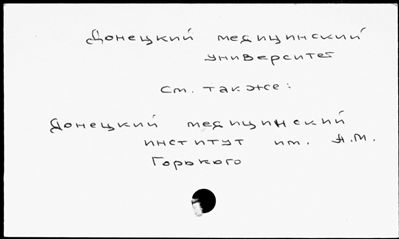 Донецкий медицинский
университет
См. также:
Донецкий медицинский
институт им. А.М.
Горького